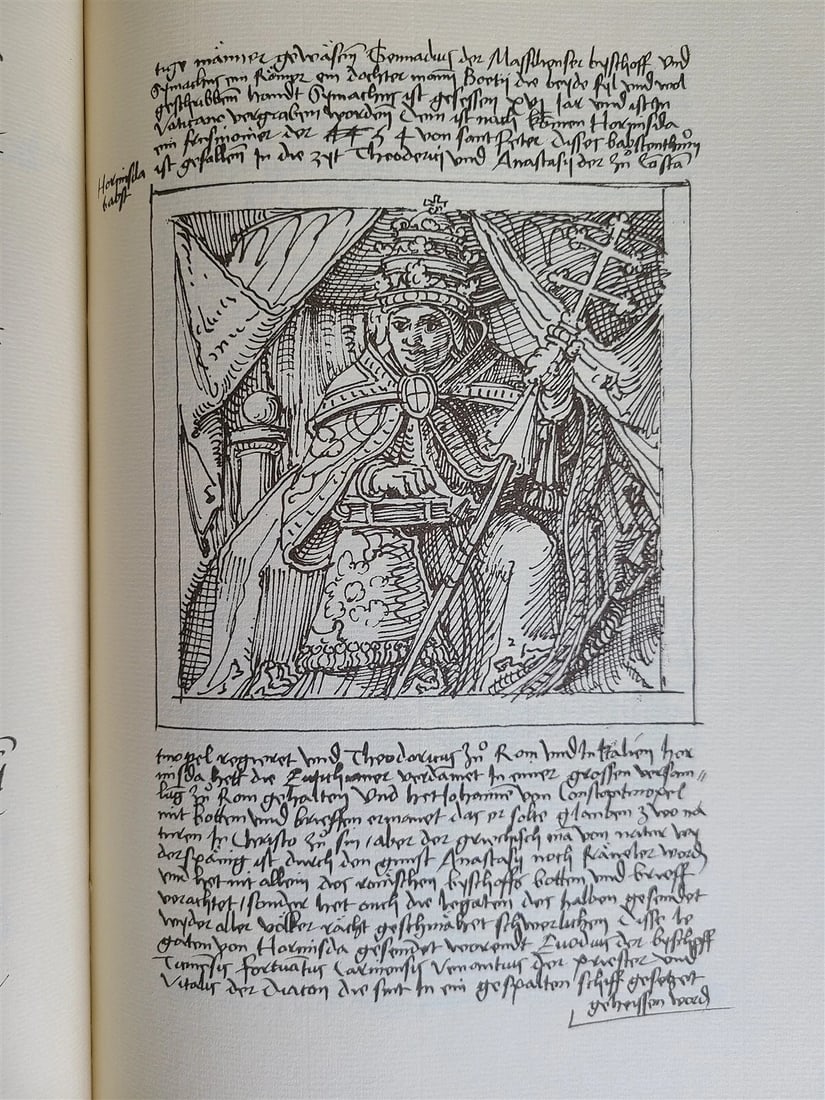 tige männer gewäsen Gennadius der Massilienser byschoff und
Symachus ein Römer ein dochter mann Boetii die beide fyl und wol
geschribben handt Symachus ist gesessen XVI Jar und ist in
Vaticano vergraben worden Denn ist nach kommen Hormisda
ein der 54 von sant Peter disses babstenthum
ist gefallen In die zyt Theoderici und Anastasii der zů Costā
Hormisda
babst
tinopel regieret und Theodoricus zů Rom und In Italien hor
misda hett die verdamet In einer grossen versam〃
lūg zů Rom gehalten Und het Johannem von Constantinopel
mit botten und brieffen ermanet das er solte glauben zwo na
turen In Christo zů sin / aber der griechisch mā von natur
derspänig ist durch den gunst Anastasii noch word
und het nit allein des römischen byschoffs botten und brieff
verachtet / sonder het auch die legaten des halben gesendet
wyder aller völker rächt geschmähet schwerlichen Disse le
gaten von Hormisda gesendet Euodius der byschoff
Ticinensis Fortunatus Venantius der priester und
Vitalis der Diacon die sint In ein gespalten schiff gesetzet
geheissen word